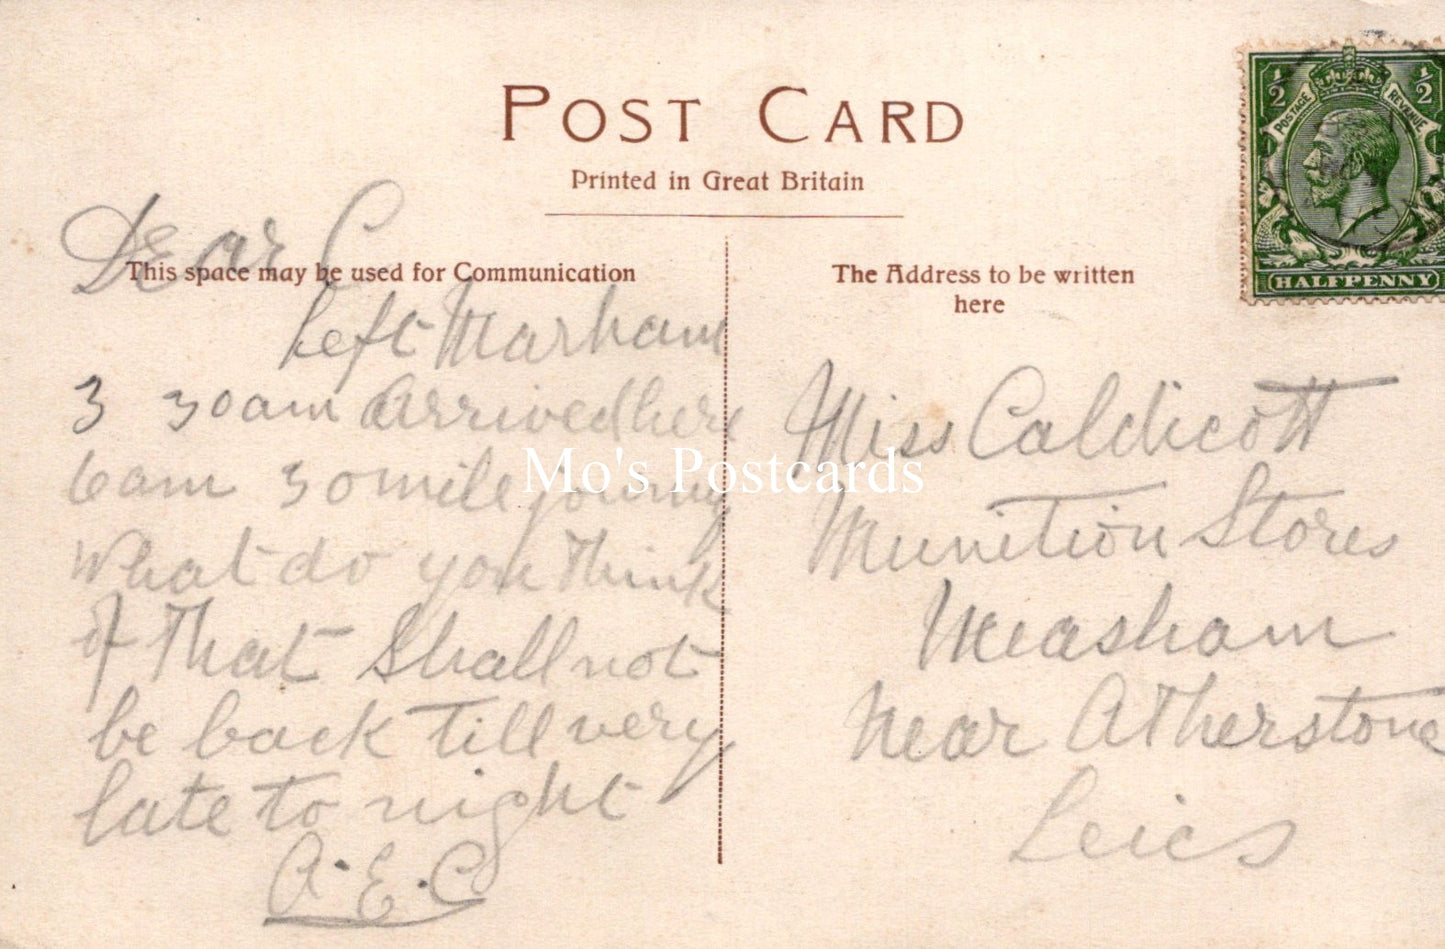 POST CARD
Printed in Great Britain
This space may be used for Communication
The Address to be written
here
1/2 POSTAGE REVENUE 1/2
HALFPENNY
Dear C
Left Marham
3 30am arrived here
6am 30 mile journy
What do you think
of That Shall not
be back till very
late to night
A.E.C
Miss Caldicott
Munition Stores
Measham
Near Atherstone
Leics
Mo's Postcards